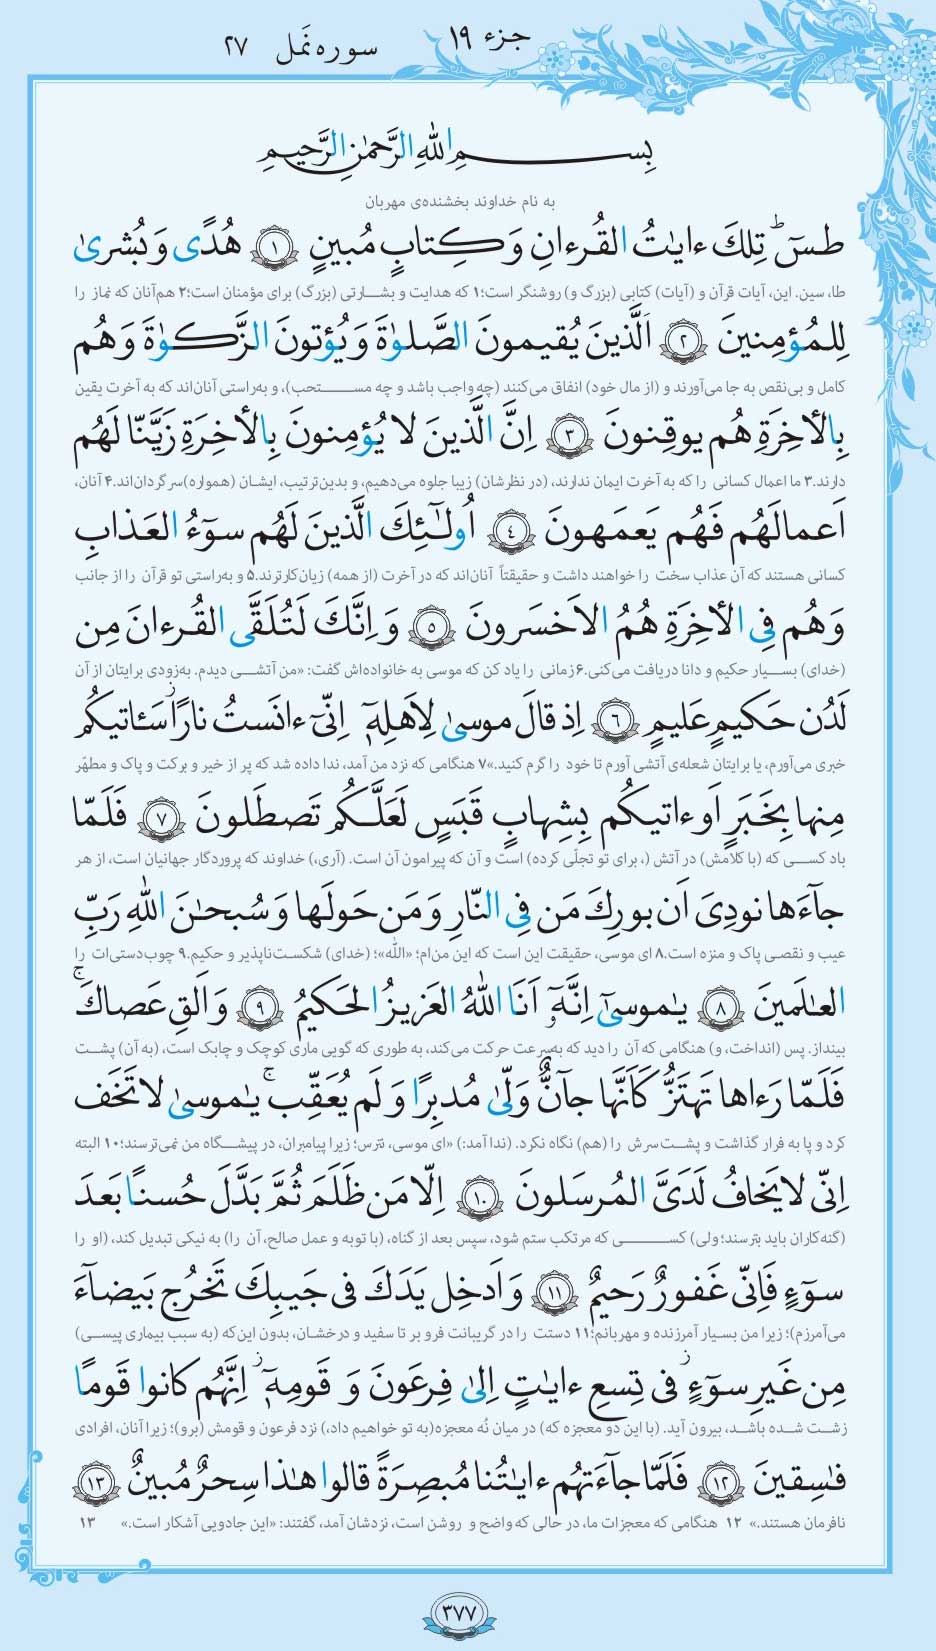 جزء ۱۹
سوره نَمل ۲۷
بِسمِ اللهِ الرَّحمٰنِ الرَّحیمِ
به نام خداوند بخشنده‌ی مهربان
طسٓ ۚ تِلكَ ءایٰتُ القُرءانِ وَ كِتابٍ مُبینٍ ﴿۱﴾ هُدًی وَ بُشریٰ
طا، سین. این، آیات قرآن و (آیات) کتابی (بزرگ و) روشنگر است؛۱ که هدایت و بشارتی (بزرگ) برای مؤمنان است؛۲ هم‌آنان که نماز را
لِلمُؤمِنینَ ﴿۲﴾ اَلَّذینَ یُقیمونَ الصَّلوٰةَ وَ یُؤتونَ الزَّكوٰةَ وَ هُم
کامل و بی‌نقص به جا می‌آورند و (از مال خود) انفاق می‌کنند (چه واجب باشد و چه مستحب)، و به‌راستی آنان‌اند که به آخرت یقین
بِالأٰخِرَةِ هُم یوقِنونَ ﴿۳﴾ اِنَّ الَّذینَ لا یُؤمِنونَ بِالأٰخِرَةِ زَیَّنّا لَهُم
دارند.۳ ما اعمال کسانی را که به آخرت ایمان ندارند، (در نظرشان) زیبا جلوه می‌دهیم، و بدین‌ترتیب، ایشان (همواره)سرگردان‌اند.۴ آنان،
اَعمالَهُم فَهُم یَعمَهونَ ﴿۴﴾ اُولٰٓئِكَ الَّذینَ لَهُم سوٓءُ العَذابِ
کسانی هستند که آن عذاب سخت را خواهند داشت و حقیقتاً آنان‌اند که در آخرت (از همه) زیان‌کارترند.۵ و به‌راستی تو قرآن را از جانب
وَ هُم فِی الأٰخِرَةِ هُمُ الاَخسَرونَ ﴿۵﴾ وَ اِنَّكَ لَتُلَقَّی القُرءانَ مِن
(خدای) بسیار حکیم و دانا دریافت می‌کنی.۶ زمانی را یاد کن که موسی به خانواده‌اش گفت: «من آتشی دیدم. به‌زودی برایتان از آن
لَدُن حَكیمٍ عَلیمٍ ﴿۶﴾ اِذ قالَ موسیٰ لِاَهلِهٖٓ اِنّیٓ ءانَستُ نارًا ز سَئاتیكُم
خبری می‌آورم، یا برایتان شعله‌ی آتشی آورم تا خود را گرم کنید.»۷ هنگامی که نزد من آمد، ندا داده شد که پر از خیر و برکت و پاک و مطهّر
مِنها بِخَبَرٍ اَو ءاتیكُم بِشِهابٍ قَبَسٍ لَعَلَّكُم تَصطَلونَ ﴿۷﴾ فَلَمّا
باد کسی که (با کلامش) در آتش (، برای تو تجلّی کرده) است و آن که پیرامون آن است. (آری،) خداوند که پروردگار جهانیان است، از هر
جآءَها نودِیَ اَن بورِكَ مَن فِی النّارِ وَ مَن حَولَها وَ سُبحٰنَ اللهِ رَبِّ
عیب و نقصی پاک و منزه است.۸ ای موسی، حقیقت این است که این من‌ام؛ «الله»؛ (خدای) شکست‌ناپذیر و حکیم.۹ چوب‌دستی‌ات را
العٰلَمینَ ﴿۸﴾ یٰموسیٰٓ اِنَّهٗٓ اَنَا اللهُ العَزیزُ الحَكیمُ ﴿۹﴾ وَ اَلقِ عَصاكَ ۚ
بینداز. پس (انداخت، و) هنگامی که آن را دید که به‌سرعت حرکت می‌کند، به طوری که گویی ماری کوچک و چابک است، (به آن) پشت
فَلَمّا رَءاها تَهتَزُّ كَاَنَّها جآنٌّ وَلّیٰ مُدبِرًا وَ لَم یُعَقِّب ۚ یٰموسیٰ لا تَخَف
کرد و پا به فرار گذاشت و پشت‌سرش را (هم) نگاه نکرد. (ندا آمد:) «ای موسی، نترس؛ زیرا پیامبران، در پیشگاه من نمی‌ترسند؛۱۰ البته
اِنّی لا یَخافُ لَدَیَّ المُرسَلونَ ﴿۱۰﴾ اِلّا مَن ظَلَمَ ثُمَّ بَدَّلَ حُسنًا بَعدَ
(گنه‌کاران باید بترسند؛ ولی) کسی که مرتکب ستم شود، سپس بعد از گناه، (با توبه و عمل صالح، آن را) به نیکی تبدیل کند، (او را
سوٓءٍ فَاِنّی غَفورٌ رَحیمٌ ﴿۱۱﴾ وَ اَدخِل یَدَكَ فی جَیبِكَ تَخرُج بَیضآءَ
می‌آمرزم)؛ زیرا من بسیار آمرزنده و مهربانم؛۱۱ دستت را در گریبانت فرو بر تا سفید و درخشان، بدون این‌که (به سبب بیماری پیسی)
مِن غَیرِ سوٓءٍ ز فی تِسعِ ءایٰتٍ اِلیٰ فِرعَونَ وَ قَومِهٖٓ ز اِنَّهُم كانوا قَومًا
زشت شده باشد، بیرون آید. (با این دو معجزه که) در میان نُه معجزه(به تو خواهیم داد،) نزد فرعون و قومش (برو)؛ زیرا آنان، افرادی
فٰسِقینَ ﴿۱۲﴾ فَلَمّا جآءَتهُم ءایٰتُنا مُبصِرَةً قالوا هٰذا سِحرٌ مُبینٌ ﴿۱۳﴾
نافرمان هستند.» ۱۲ هنگامی که معجزات ما، در حالی که واضح و روشن است، نزدشان آمد، گفتند: «این جادویی آشکار است.» ۱۳
۳۷۷